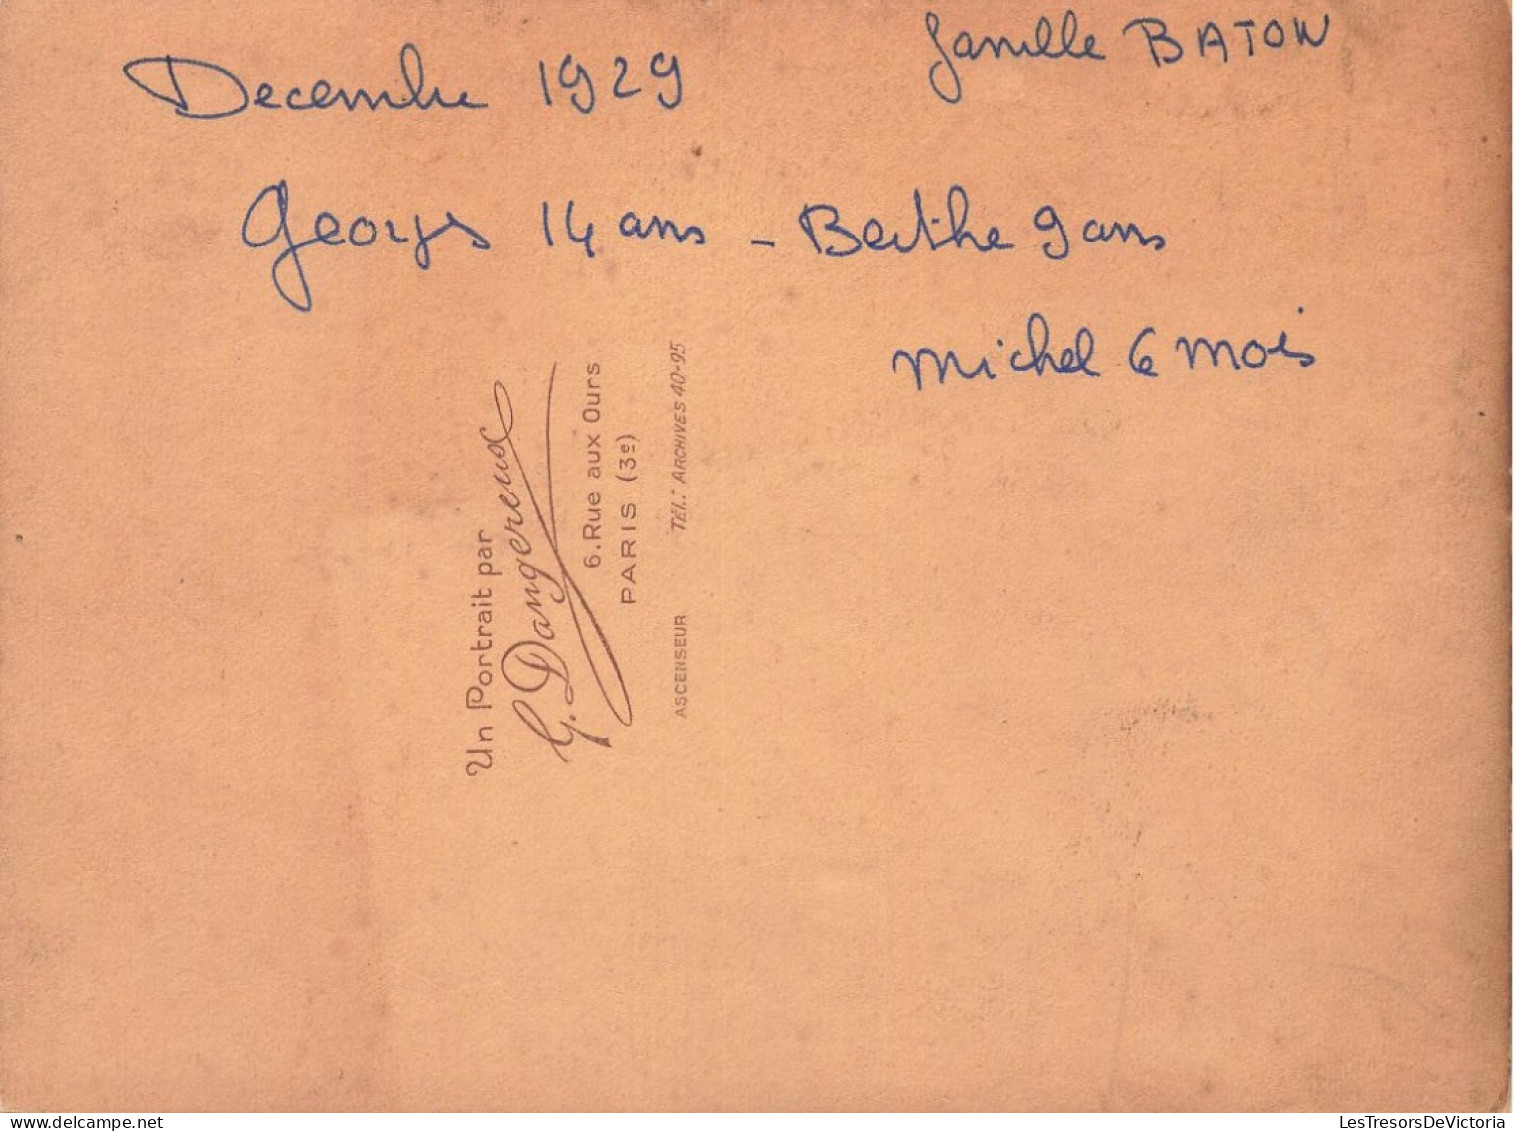 famille BATON
Decembre 1929
Georges 14 ans - Berthe 9 ans
Michel 6 mois
Un Portrait par
G. Dangereux
6. Rue aux Ours
PARIS (3e)
ASCENSEUR TÉL.: ARCHIVES 40-95
LesTresorsDeVictoria
delcampe.net